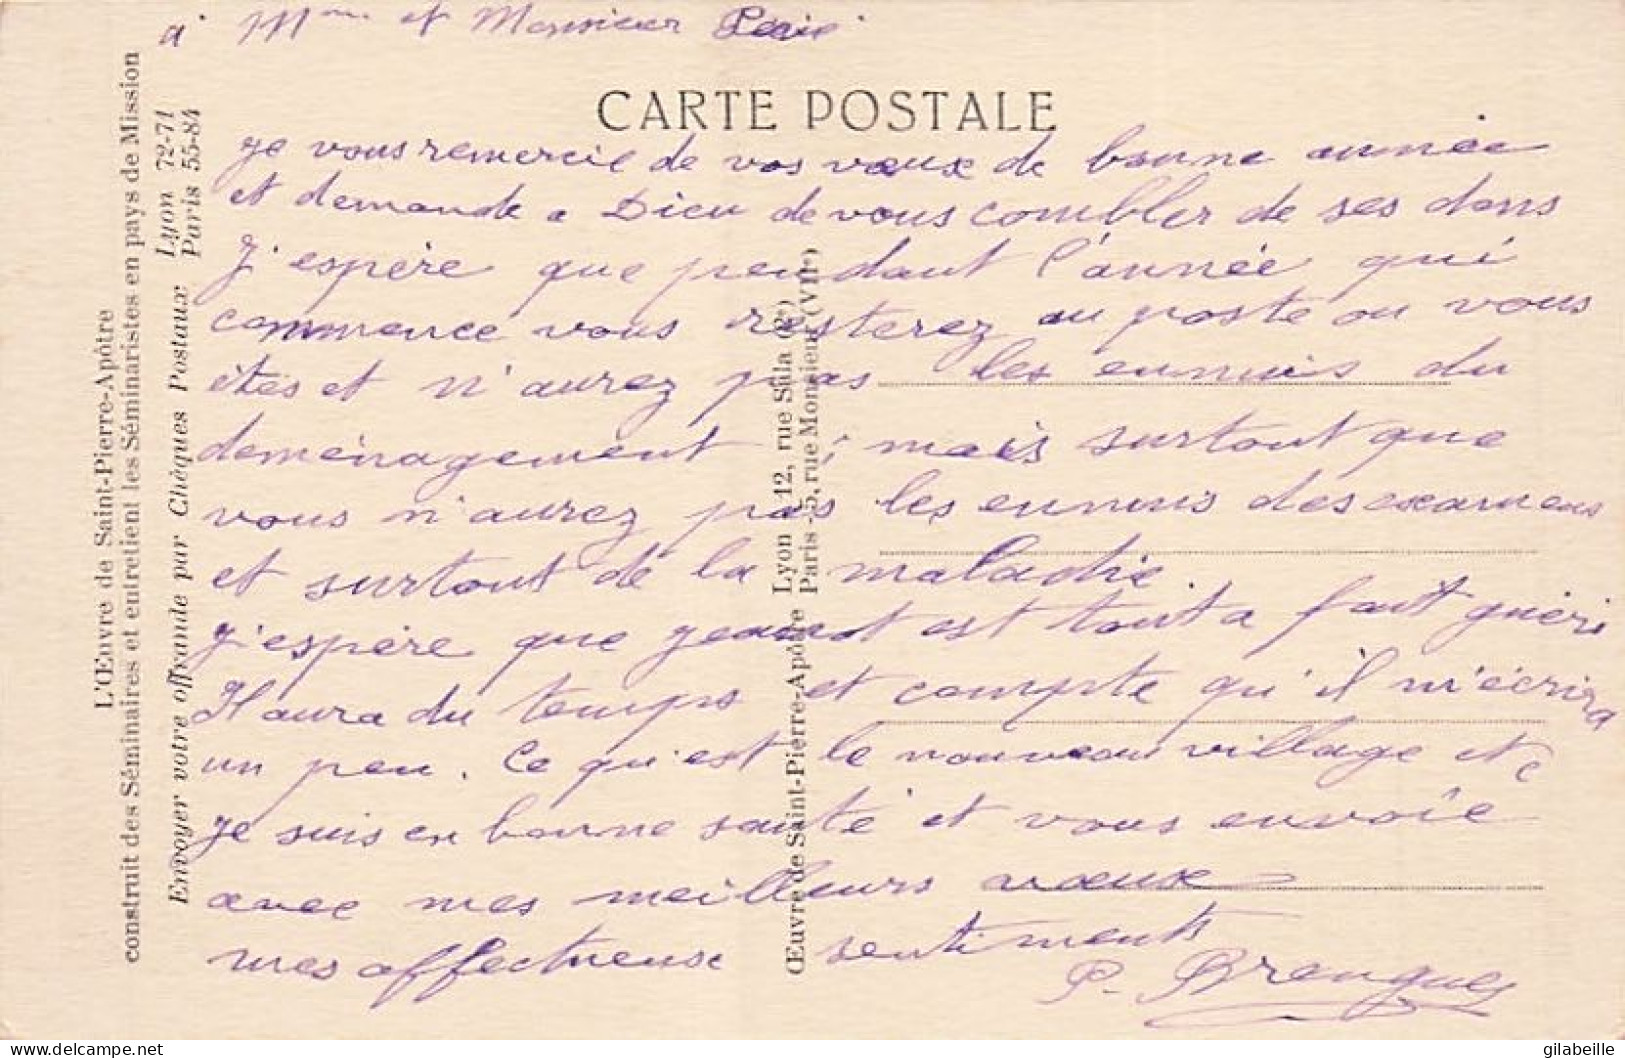 a Mme et Monsieur
CARTE POSTALE
je vous remercie de vos vœux de bonne année
et demande a Dieu de vous combler de ses dons
J'espère que pendant l'année qui
commence vous resterez au poste ou vous
êtes et n'aurez pas les ennuis du
deménagement ; mais surtout que
vous n'aurez pas les ennuis des examens
et surtout de la maladie.
J'espère que jeannot est tout a fait guéri
Il aura du temps et compte qu'il m'écrira
un peu. Ce qu'est le nouveau village etc
je suis en bonne santé et vous envoie
avec mes meilleurs vœux
mes affectueux sentiments
P. Brengues
L'Œuvre de Saint-Pierre-Apôtre
construit des Séminaires et entretient les Séminaristes en pays de Mission
Envoyer votre offrande par Chèques Postaux Lyon 72-71
Paris 55-84
Œuvre de Saint-Pierre-Apôtre Lyon - 12, rue Sala (2e)
Paris - 5, rue Monsieur (VIIe)
gilabeille